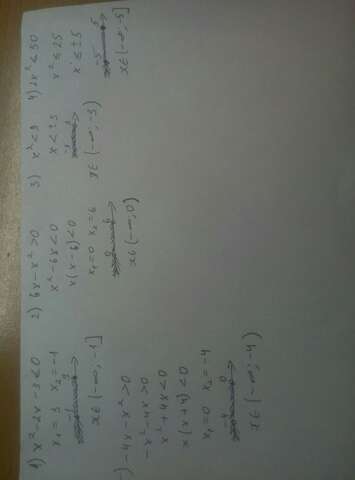 1) x² - 2x - 3 ≤ 0
x₁ = 3 x₂ = -1
x ∈ (-∞; -1]
2) 6x - x² > 0
x² - 6x < 0
x(x - 6) < 0
x₁ = 0 x₂ = 6
x ∈ (-∞; 0)
3) x² < 9
x < ± 3
x ∈ (-∞; -3)
4) 2x² ≤ 50
x² ≤ 25
x ≤ ± 5
-5 5
x ∈ (-∞; -5]
-4x - x² > 0
-x² - 4x > 0
x² + 4x < 0
x(x + 4) < 0
x₁ = 0 x₂ = -4
-4 0
x ∈ (-∞; -4)